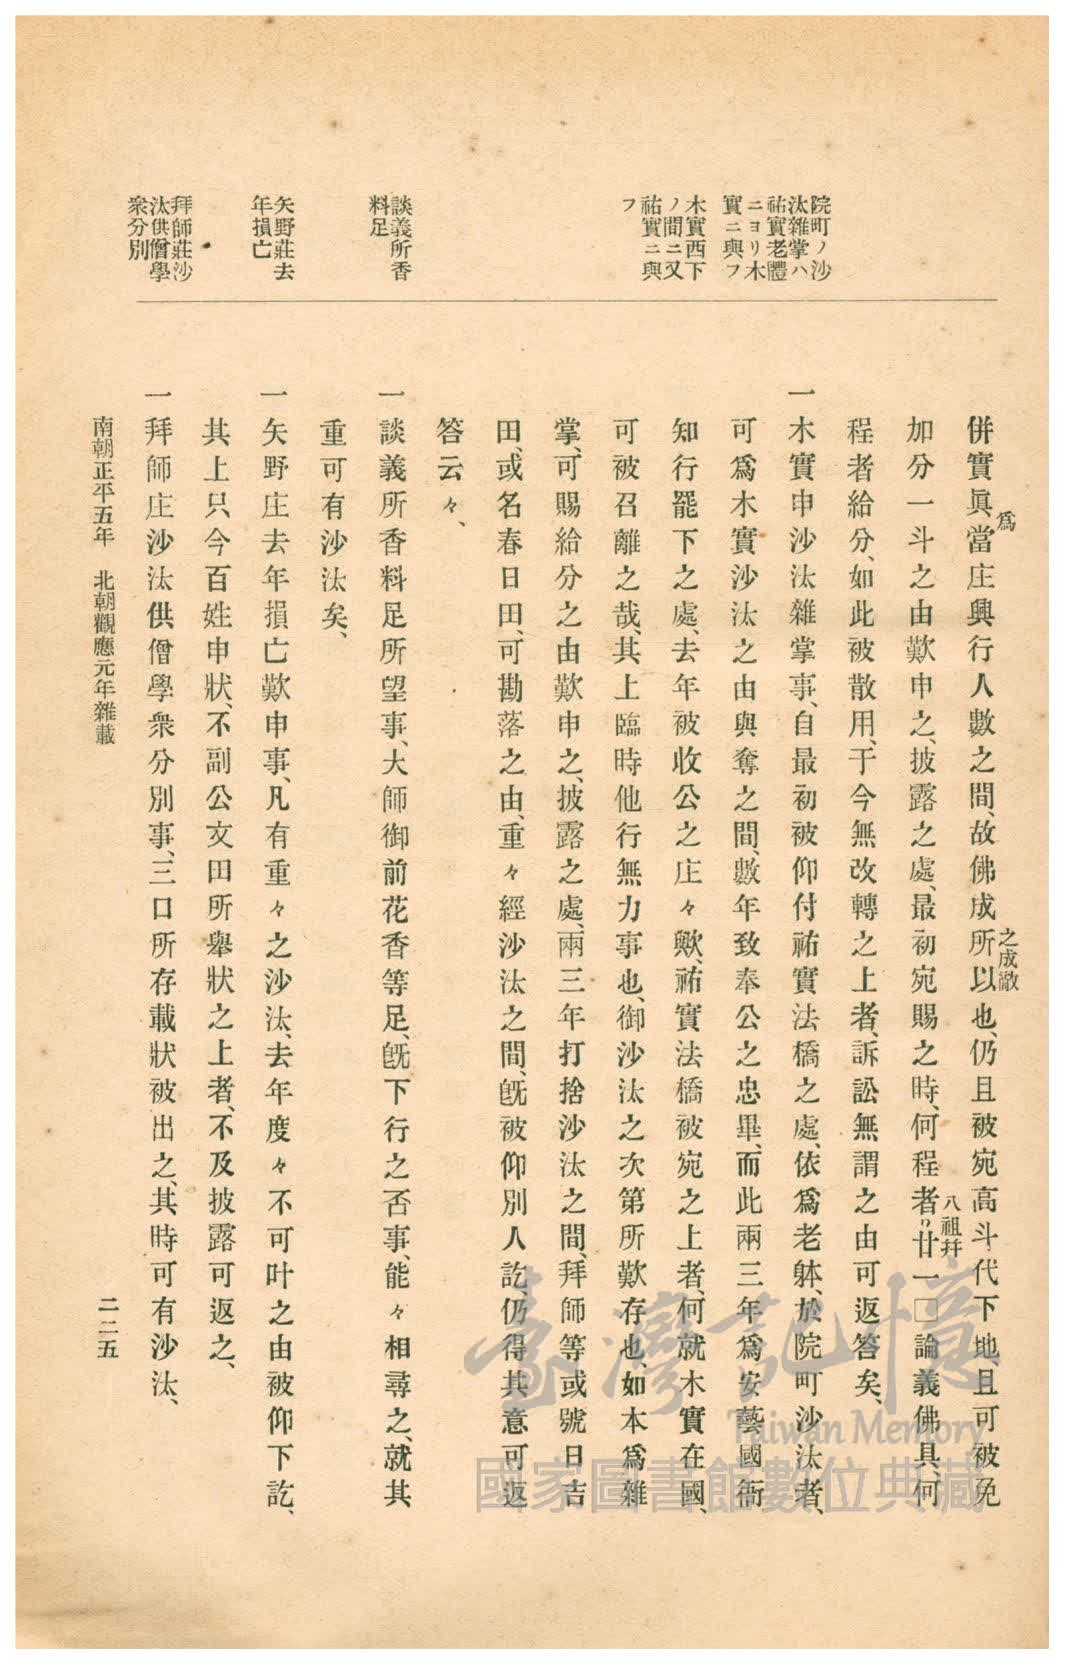 院町ノ沙
汰雜掌ハ
祐實老體
ニヨリ木
實ニ與フ
木實西下
ノ間ニ又
祐實ニ與
フ
談義所香
料足
矢野莊去
年損亡
拜師莊沙
汰供僧學
衆分別
併實眞當庄興行人數之間、故佛成所以也、仍且被宛高斗代下地且可被免
爲
之成敵
加分一斗之由歎申之、披露之處、最初宛賜之時、何程者ﾘ廿一□論義佛具、何
八祖幷
程者給分、如此被散用、于今無改轉之上者、訴訟無謂之由可返答矣、
一木實申沙汰雜掌事、自最初被仰付祐實法橋之處、依爲老躰、於院町沙汰者、
可爲木實沙汰之由與奪之間、數年致奉公之忠畢、而此兩三年爲安藝國衙
知行罷下之處、去年被收公之庄々歟、祐實法橋被宛之上者、何就木實在國、
可被召離之哉、其上臨時他行無力事也、御沙汰之次第所歎存也、如本爲雜
掌、可賜給分之由歎申之、披露之處、兩三年打捨沙汰之間、拜師等或號日吉
田、或名春日田、可勘落之由、重々經沙汰之間、旣被仰別人訖、仍得其意可返
答云々、
一談義所香料足所望事、大師御前花香等足、旣下行之否事、能々相尋之、就其
重可有沙汰矣、
一矢野庄去年損亡歎申事、凡有重々之沙汰、去年度々不可叶之由被仰下訖、
其上只今百姓申狀、不副公文田所擧狀之上者、不及披露可返之、
一拜師庄沙汰供僧學衆分別事、三口所存載狀被出之、其時可有沙汰、
南朝正平五年　北朝觀應元年雜載
二二五
臺灣記憶
Taiwan Memory
國家圖書館數位典藏